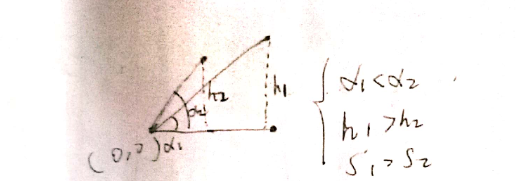 h2
h1
α2
(0,0) α1
α1<α2
h1>h2
S1>S2